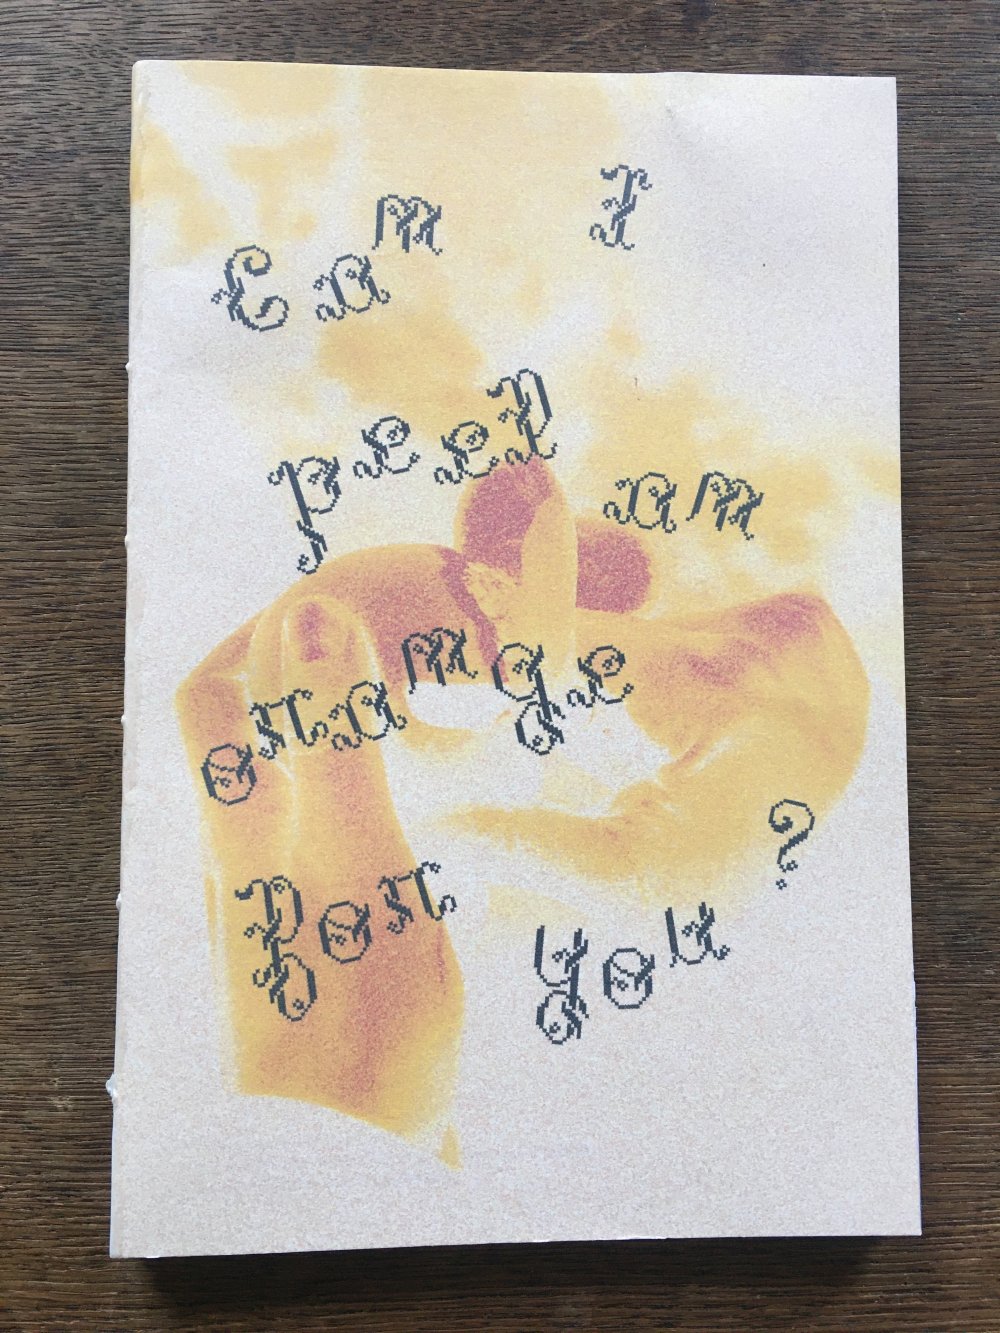 Can I
peel an
orange
for you?